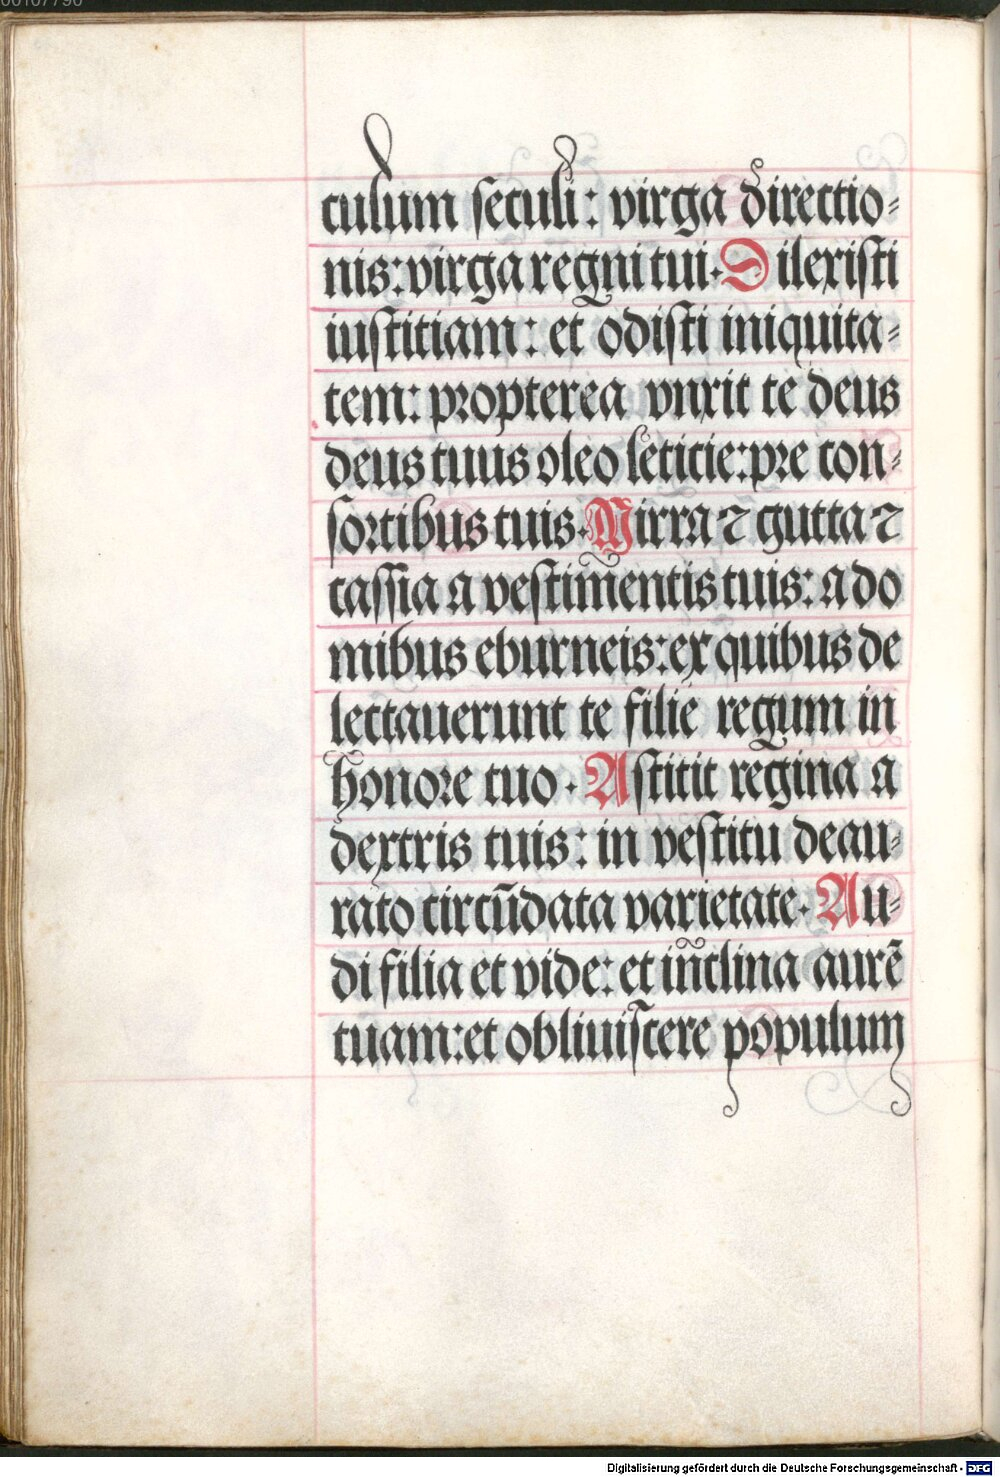 00107790
culum seculi: virga directio-
nis: virga regni tui. Dilexisti
iustitiam: et odisti iniquita-
tem: propterea vnxit te deus
deus tuus oleo leticie: pre con-
sortibus tuis. Mirra ⁊ gutta ⁊
cassia a vestimentis tuis: a do
mibus eburneis: ex quibus de
lectauerunt te filie regum in
honore tuo. Astitit regina a
dextris tuis: in vestitu deau-
rato circūdata varietate. Au-
di filia et vide: et inclina aurē
tuam: et obliuiscere populum
Digitalisierung gefördert durch die Deutsche Forschungsgemeinschaft - DFG